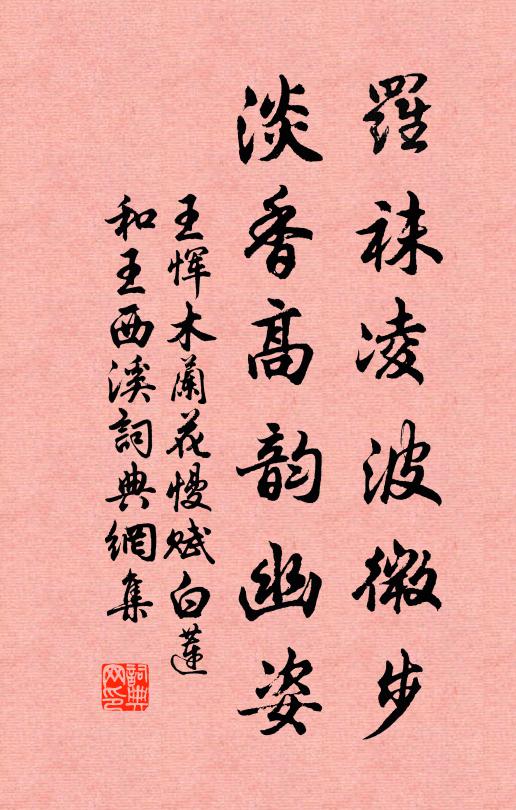 羅袜凌波微步
淡香高韵幽姿
王惲木蘭花慢賦白蓮
和王西溪詞典網集
詞典网印